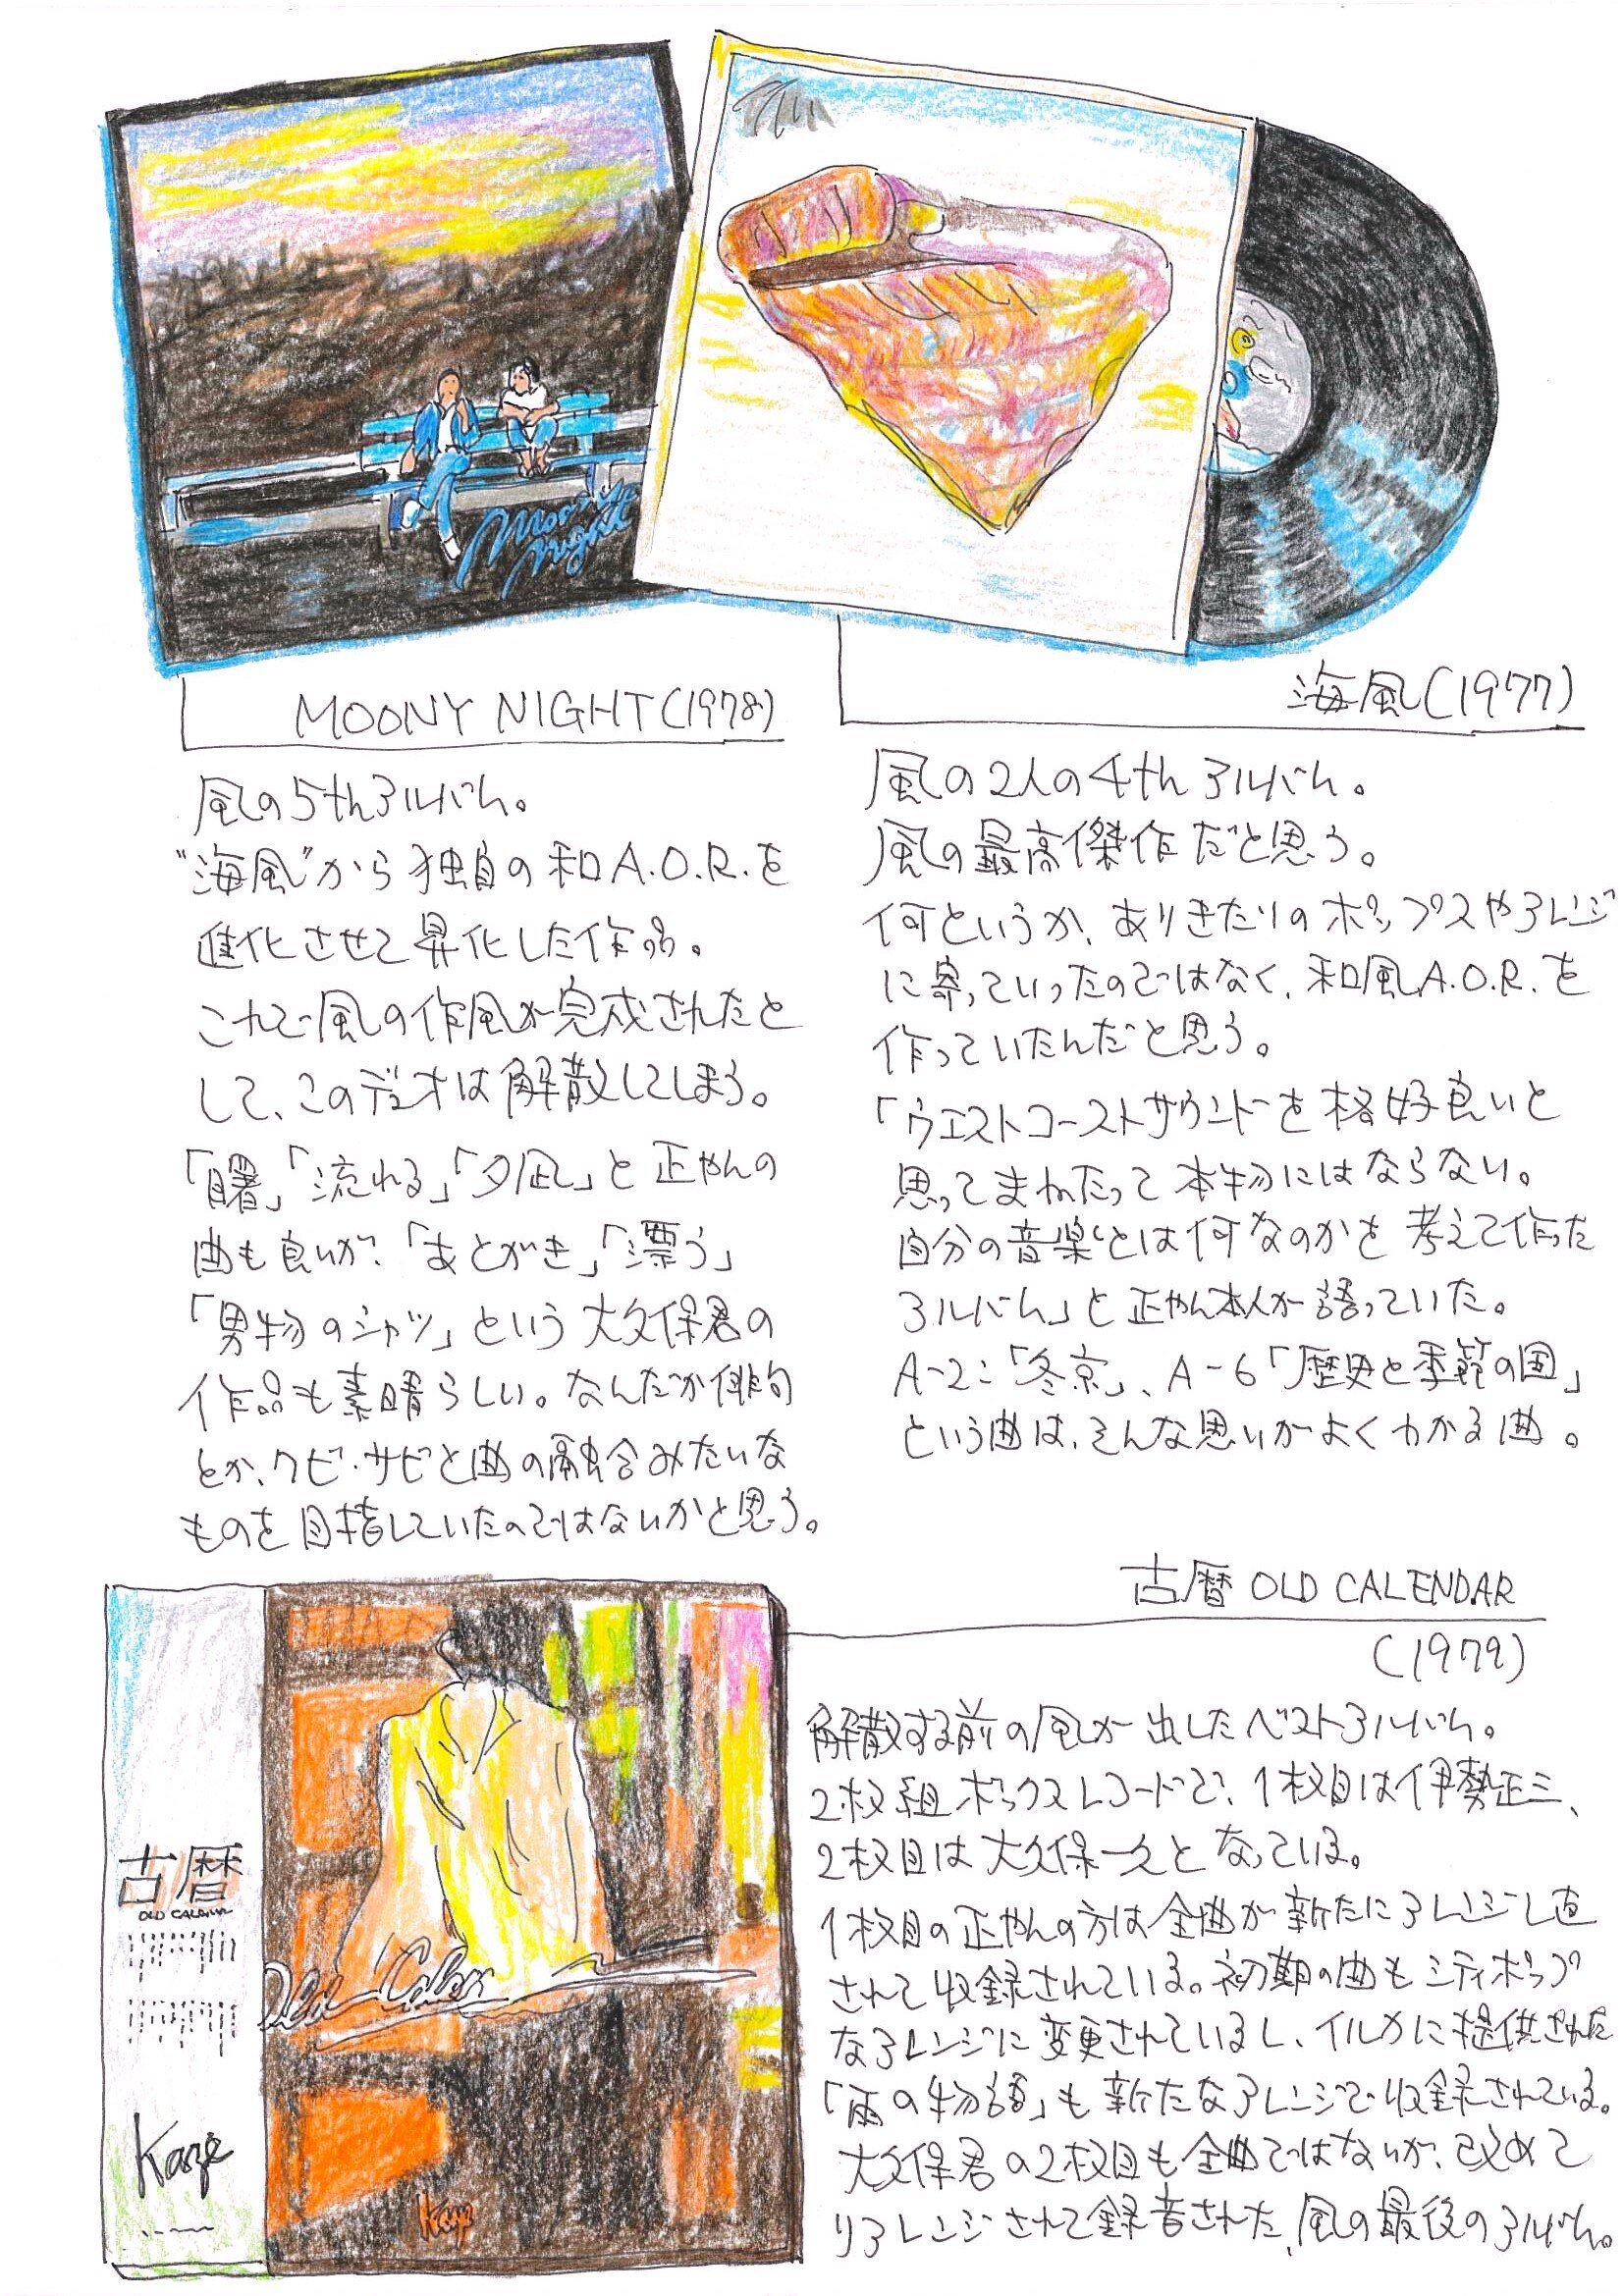 Moony Night
MOONY NIGHT(1978)
風の5thアルバム。
"海風"から独自の和A.O.R.を
進化させて昇化した作品。
これで風の作風が完成されたと
して、このデュオは解散してしまう。
「曙」「流れる」「夕凪」と正やんの
曲も良いが、「あとがき」「漂う」
「男物のシャツ」という大久保君の
作品も素晴らしい。なんだか俳句
とか、ワビ・サビと曲の融合みたいな
ものを目指していたのではないかと思う。
海風(1977)
風の2人の4thアルバム。
風の最高傑作だと思う。
何というか、ありきたりのポップスやアレンジ
に寄っていったのではなく、和風A.O.R.を
作っていたんだと思う。
「ウエストコーストサウンドを格好良いと
思ってまねたって本物にはならない。
自分の音楽とは何なのかを考えて作った
アルバム」と正やん本人が語っていた。
A-2:「冬京」、A-6「歴史と季節の国」
という曲は、そんな思いがよくわかる曲。
古暦
OLD CALENDAR
Kaze
Old Calendar
Kaze
古暦 OLD CALENDAR
(1979)
解散する前の風が出したベストアルバム。
2枚組ボックスレコードで、1枚目は伊勢正三、
2枚目は大久保一久となっている。
1枚目の正やんの方は全曲が新たにアレンジし直
されて収録されている。初期の曲もシティポップ
なアレンジに変更されているし、イルカに提供された
「雨の物語」も新たなアレンジで収録されている。
大久保君の2枚目も全曲ではないが、改めて
リアレンジされて録音された、風の最後のアルバム。